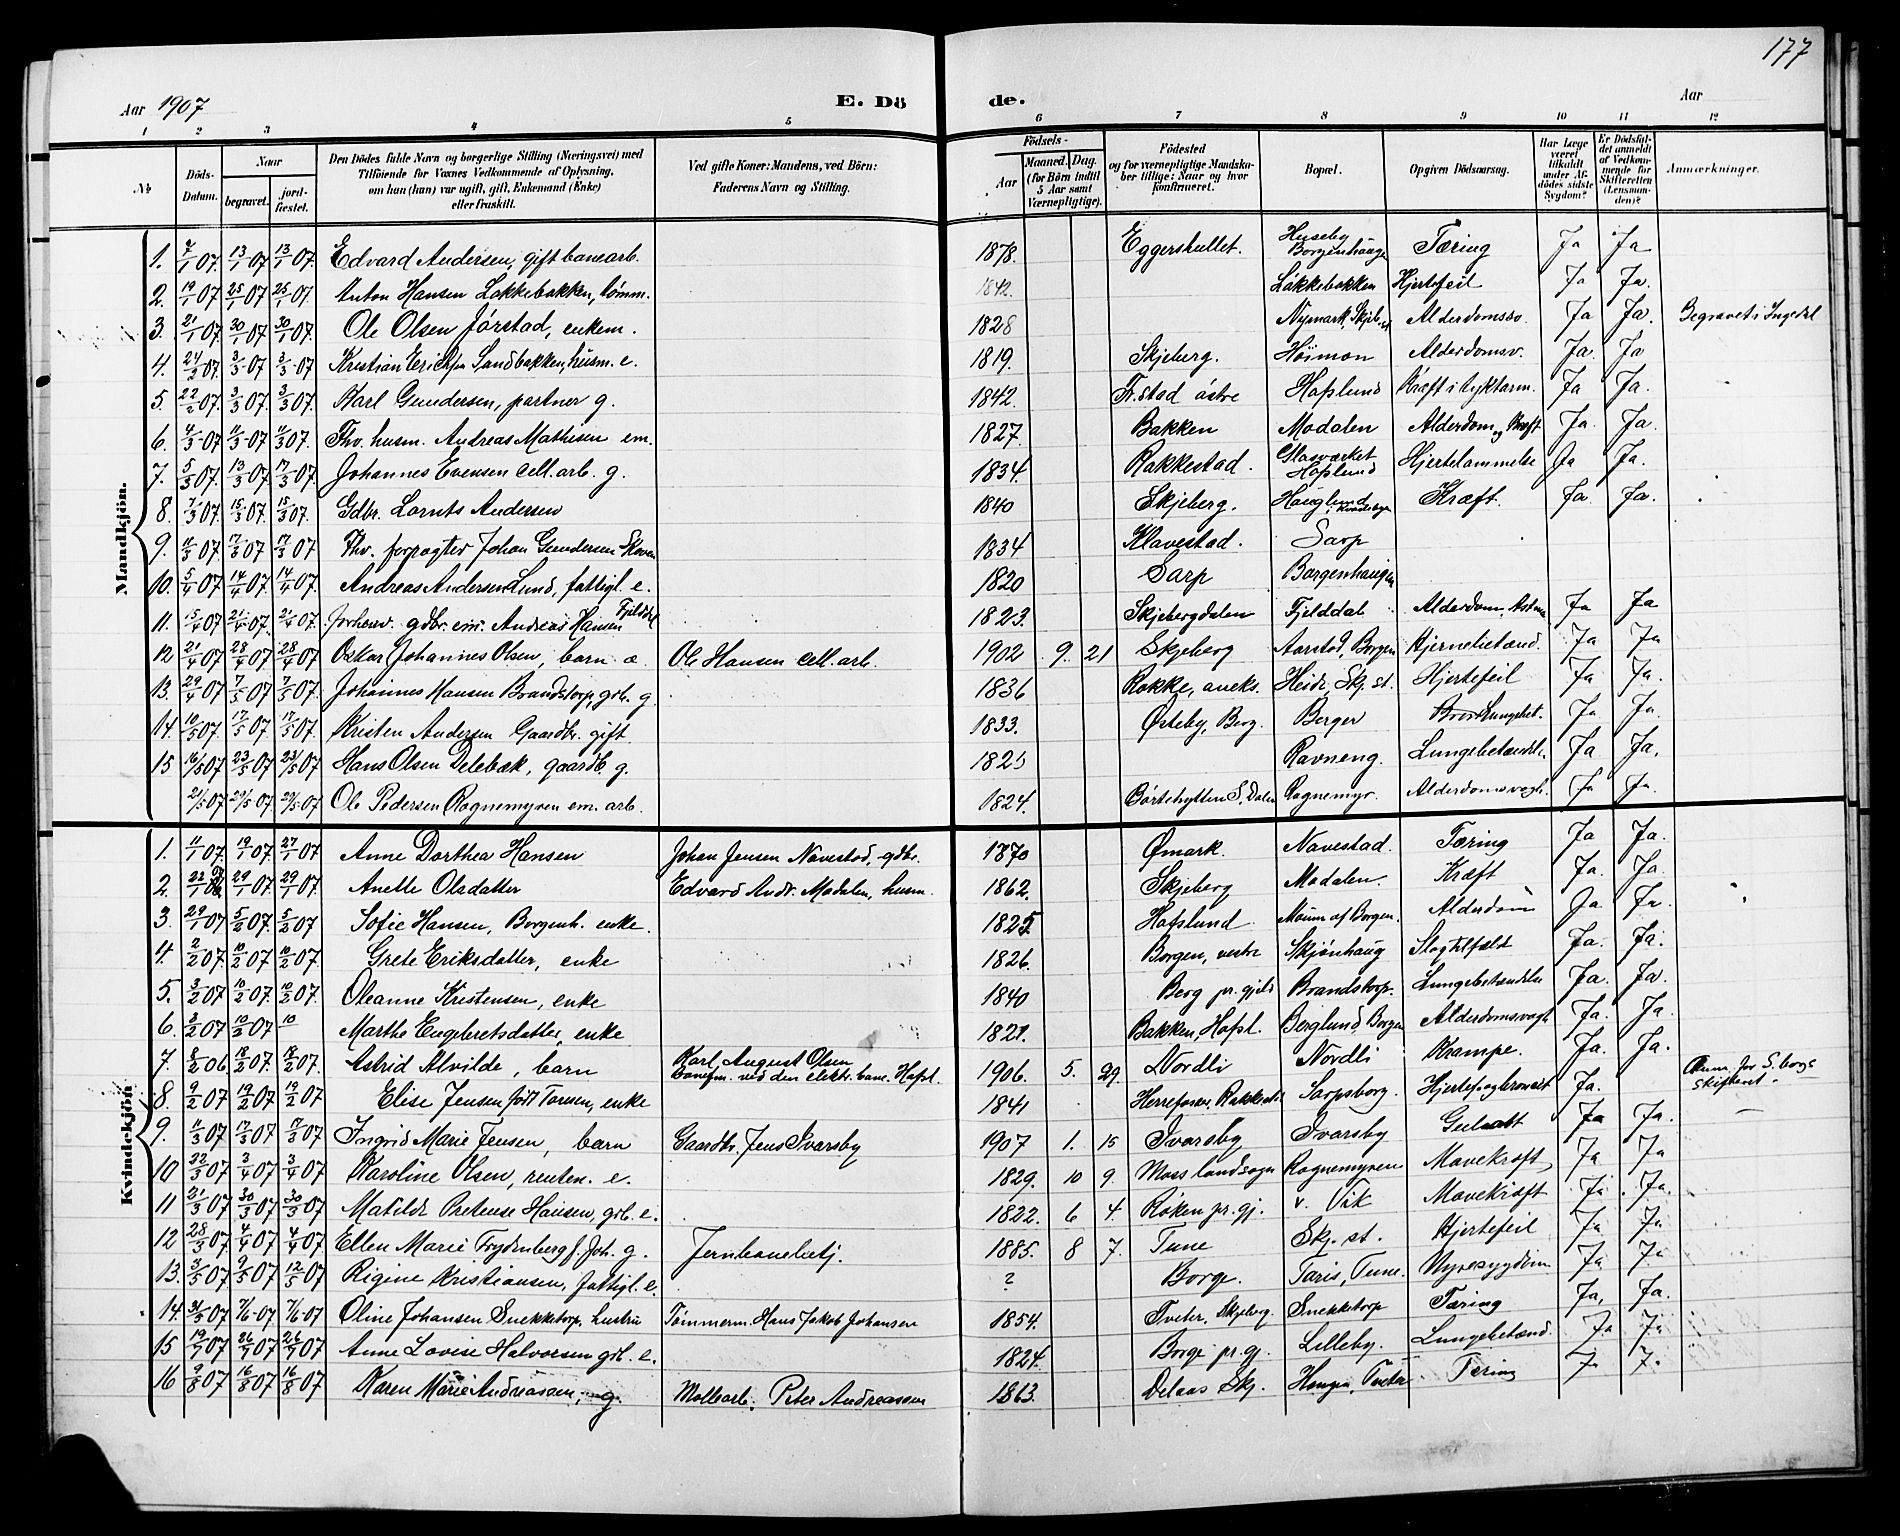 177
Aar 1907 E. Dö de. Aar
1 2 3 4 5 6 7 8 9 10 11 12
No Döds-Datum. Naar begravet. jordfæstet. Den Dödes fulde Navn og borgerlige Stilling (Næringsvei) med Tilföiende for Voxnes Vedkommende af Oplysning, om han (hun) var ugift, gift, Enkemand (Enke) eller fraskilt. Ved gifte Koner: Mandens, ved Börn: Faderens Navn og Stilling. Födsels- Aar Maaned. Dag. (for Börn indtil 5 Aar samt Værnepligtige). Födested og for værnepligtige Mandskaber tillige: Naar og hvor konfirmeret. Bopæl. Opgiven Dödsaarsag. Har Læge været tilkaldt under Afdödes sidste Sygdom? Er Dödsfaldet anmeldt af Vedkommende for Skifteretten (Lensmanden)? Anmærkninger.
Mandkjön.
1. 7/1 07. 13/1 07 13/1 07. Edvard Andersen, gift banearb. 1878. Eggershullet. Huseby Borgenhauge Tæring Ja Ja
2. 19/1 07. 25/1 07 25/1 07. Anton Hansen Løkkebakken, tømm. 1842. Løkkebakken Hjertefeil Ja Ja.
3. 21/1 07. 30/1 07. 30/1 07. Ole Olsen Jørstad, enkem. 1828 Nymark, Skjeb. st. Alderdomssv. Ja Ja. Begravet i Ingedal
4. 24/2 07. 3/3 07 3/3 07 Kristian Erichsen Sandbakken, husm. e. 1819. Skjeberg. Høimon Alderdomsv. Ja. Ja
5. 22/2 07. 3/3 07. 3/3 07. Karl Gundersen, partner g. 1842. Fr.stad østre Hafslund Kræft i tyktarm. Ja Ja.
6. 4/3 07 11/3 07 11/3 07. Fhv. husm. Andreas Mathisen em. 1827. Bakken Modalen Alderdom og Kræft Ja. Ja.
7. 5/3 07. 13/3 07 17/3 07. Johannes Evensen cell. arb. g. 1834. Rakkestad. Glasværket Hafslund Hjertelammelse Ja Ja.
8. 7/3 07. 15/3 07. 15/3 07. Gdbr. Lornts Andersen 1840 Skjeberg. Hauglund Kræft. Ja. Ja.
9. 11/3 07 17/3 07 17/3 07 Fhv. forpagter Johan Gundersen Skoven 1834 Klavestad. Sarp
10. 5/4 07 14/4 07. 14/4 07. Andreas Andersen Lund, fattigl. e. 1820 Sarp Borgenhaugen
11. 15/4 07 21/4 07. 21/4 07 forhenv. gdbr. em. Andreas Hansen Fjelddal 1823. Skjebergdalen Fjelddal Alderdom, Astma Ja Ja
12 21/4 07 28/4 07 28/4 07. Oskar Johannes Olsen, barn æ. Ole Hansen cell. arb. 1902 9. 21 Skjeberg Aarstad, Borgen Hjernebetænd. Ja Ja
13. 29/4 07 7/5 07 7/5 07. Johannes Hansen Brandstorp, grb. g. 1836 Rokke, aneks. Heide, Skj. st. Hjertefeil Ja Ja.
14. 10/5 07. 17/5 07 17/5 07. Kristen Andersen Gaardbr. gift. 1833. Østeby, Berg. Berger Lungebet. Ja Ja.
15 16/5 07 23/5 07 23/5 07. Hans Olsen Delebæk, gaardb. g. Ravneng. Lungebetændels. Ja Ja.
21/5 07 29/5 07 29/5 07 Ole Pedersen Rognemyren em. arb. 1824. Børtehytten S. Dalen Rognemyr. Alderdomsvagh. Ja Ja.
Kvindekjön
1. 11/1 07. 19/1 07. 27/1 07 Anne Dorthea Hansen Johan Jensen Navestad, gdbr. 1870 Ømark. Navestad. Tæring Ja Ja.
2. 22/1 29/1 07. 29/1 07. Anette Olsdatter Edvard Andr. Modalen, husm. 1862. Skjeberg Modalen. Kræft Ja. Ja.
3. 29/1 07 5/2 07. 5/2 07 Sofie Hansen, Borgenh. enke. 1825. Hafslund Moum af Borgen. Alderdom Ja Ja.
4. 2/2 07. 10/2 07. 10/2 07. Grete Eriksdatter, enke 1826. Borgen, vestre Skjønhaug Slagtilfælde Ja. Ja.
5. 3/2 07 10/2 07. 10/2 07. Oleanne Kristensen, enke 1840 Berg pr. gjeld Brandstorp. Lungebetændelse Ja. Ja.
6. 3/2 07. 10/2 07. 10 Marthe Engebretsdatter, enke 1821. Bakken, Hafsl. Berglund, Borgen Alderdomsvagh Ja. Ja.
7. 8/2 06 18/2 07. 18/2 07. Astrid Alvilde, barn Karl August Olsen Banefm. ved den elektr. bane. Hafsl. 1906. 5. 29. Nordli Nordli Krampe. Ja. Ja.
8. 9/2 07 19/2 07 19/2 07 Elise Jensen født Tonsen, enke 1841 Sarpsborg. Ja. Anm. for S. borgs skifteret.
9. 11/3 07 17/3 07. 17/3 07. Ingrid Marie Jensen, barn Gaardbr. Jens Ivarsby 1907 1. 15 Ivarsby Ivarsby Gulsott Ja Ja.
10 22/3 07. 3/4 07. 3/4 07. Karoline Olsen, renten. e. 1829. 10 9. Moss landsogn Rognemyren Mavekræft Ja Ja
11 21/3 07 30/3 07 30/3 07. Matilde Pretense Hansen, grb. e. 1822. 6 4. Røken pr. gj. v. Vik Mavekræft Ja. Ja.
12 28/3 07. 4/4 07 4/4 07 Ellen Marie Frydenberg f. Joh. g. Jernbanebetj. 1885. 8 7. Tune Skj. st. Hjertefeil Ja Ja
13. 3/5 07 9/5 07 12/5 07 Rigine Kristiansen, fattigl. e. ? Borge. Taris, Tune. Nyresygdom Ja Ja
14. 31/5 07 7/6 07 7/6 07 Oline Johansen Snekketorp, hustru Tømmerm. Hans Jakob Johansen 1854. Tveter, Skjeberg. Snekketorp Tæring Ja, Ja.
15 19/7 07. 26/7 07 26/7 07 Anne Lovise Halvorsen grb. e. 1824. Borge pr. g. Lilleby. Lungebetænd. Ja Ja
16 9/8 07 16/8 07 16/8 07 Karen Marie Andreassen, g. Peter Andreassen 1863. Delaas Skj. Tæring